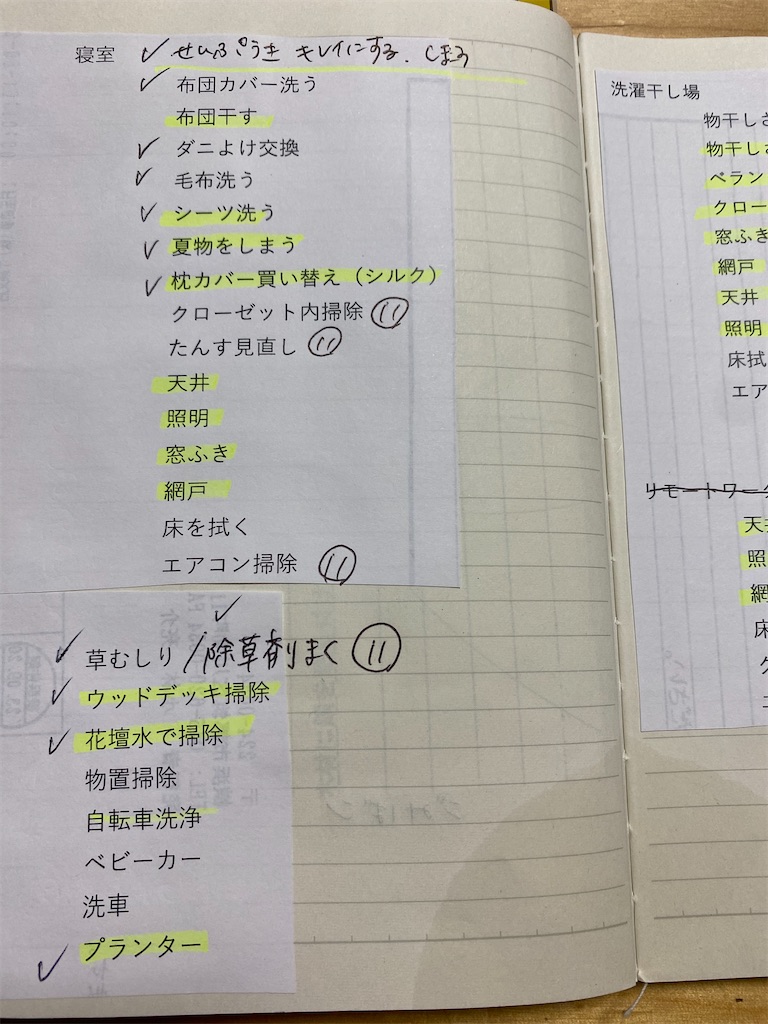 寝室 ✓ せんぷうき キレイにする. しまう
✓ 布団カバー洗う
布団干す
✓ ダニよけ交換
✓ 毛布洗う
✓ シーツ洗う
✓ 夏物をしまう
✓ 枕カバー買い替え（シルク）
クローゼット内掃除 ⑪
たんす見直し ⑪
天井
照明
窓ふき
網戸
床を拭く
エアコン掃除 ⑪
✓ 草むしり ✓ /除草剤まく ⑪
✓ ウッドデッキ掃除
✓ 花壇水で掃除
物置掃除
自転車洗浄
ベビーカー
洗車
✓ プランター
洗濯干し場
物干しさ
物干しさ
ベラン
クロー
窓ふき
網戸
天井
照明
床拭
エア
リモートワー
天
照
網
床